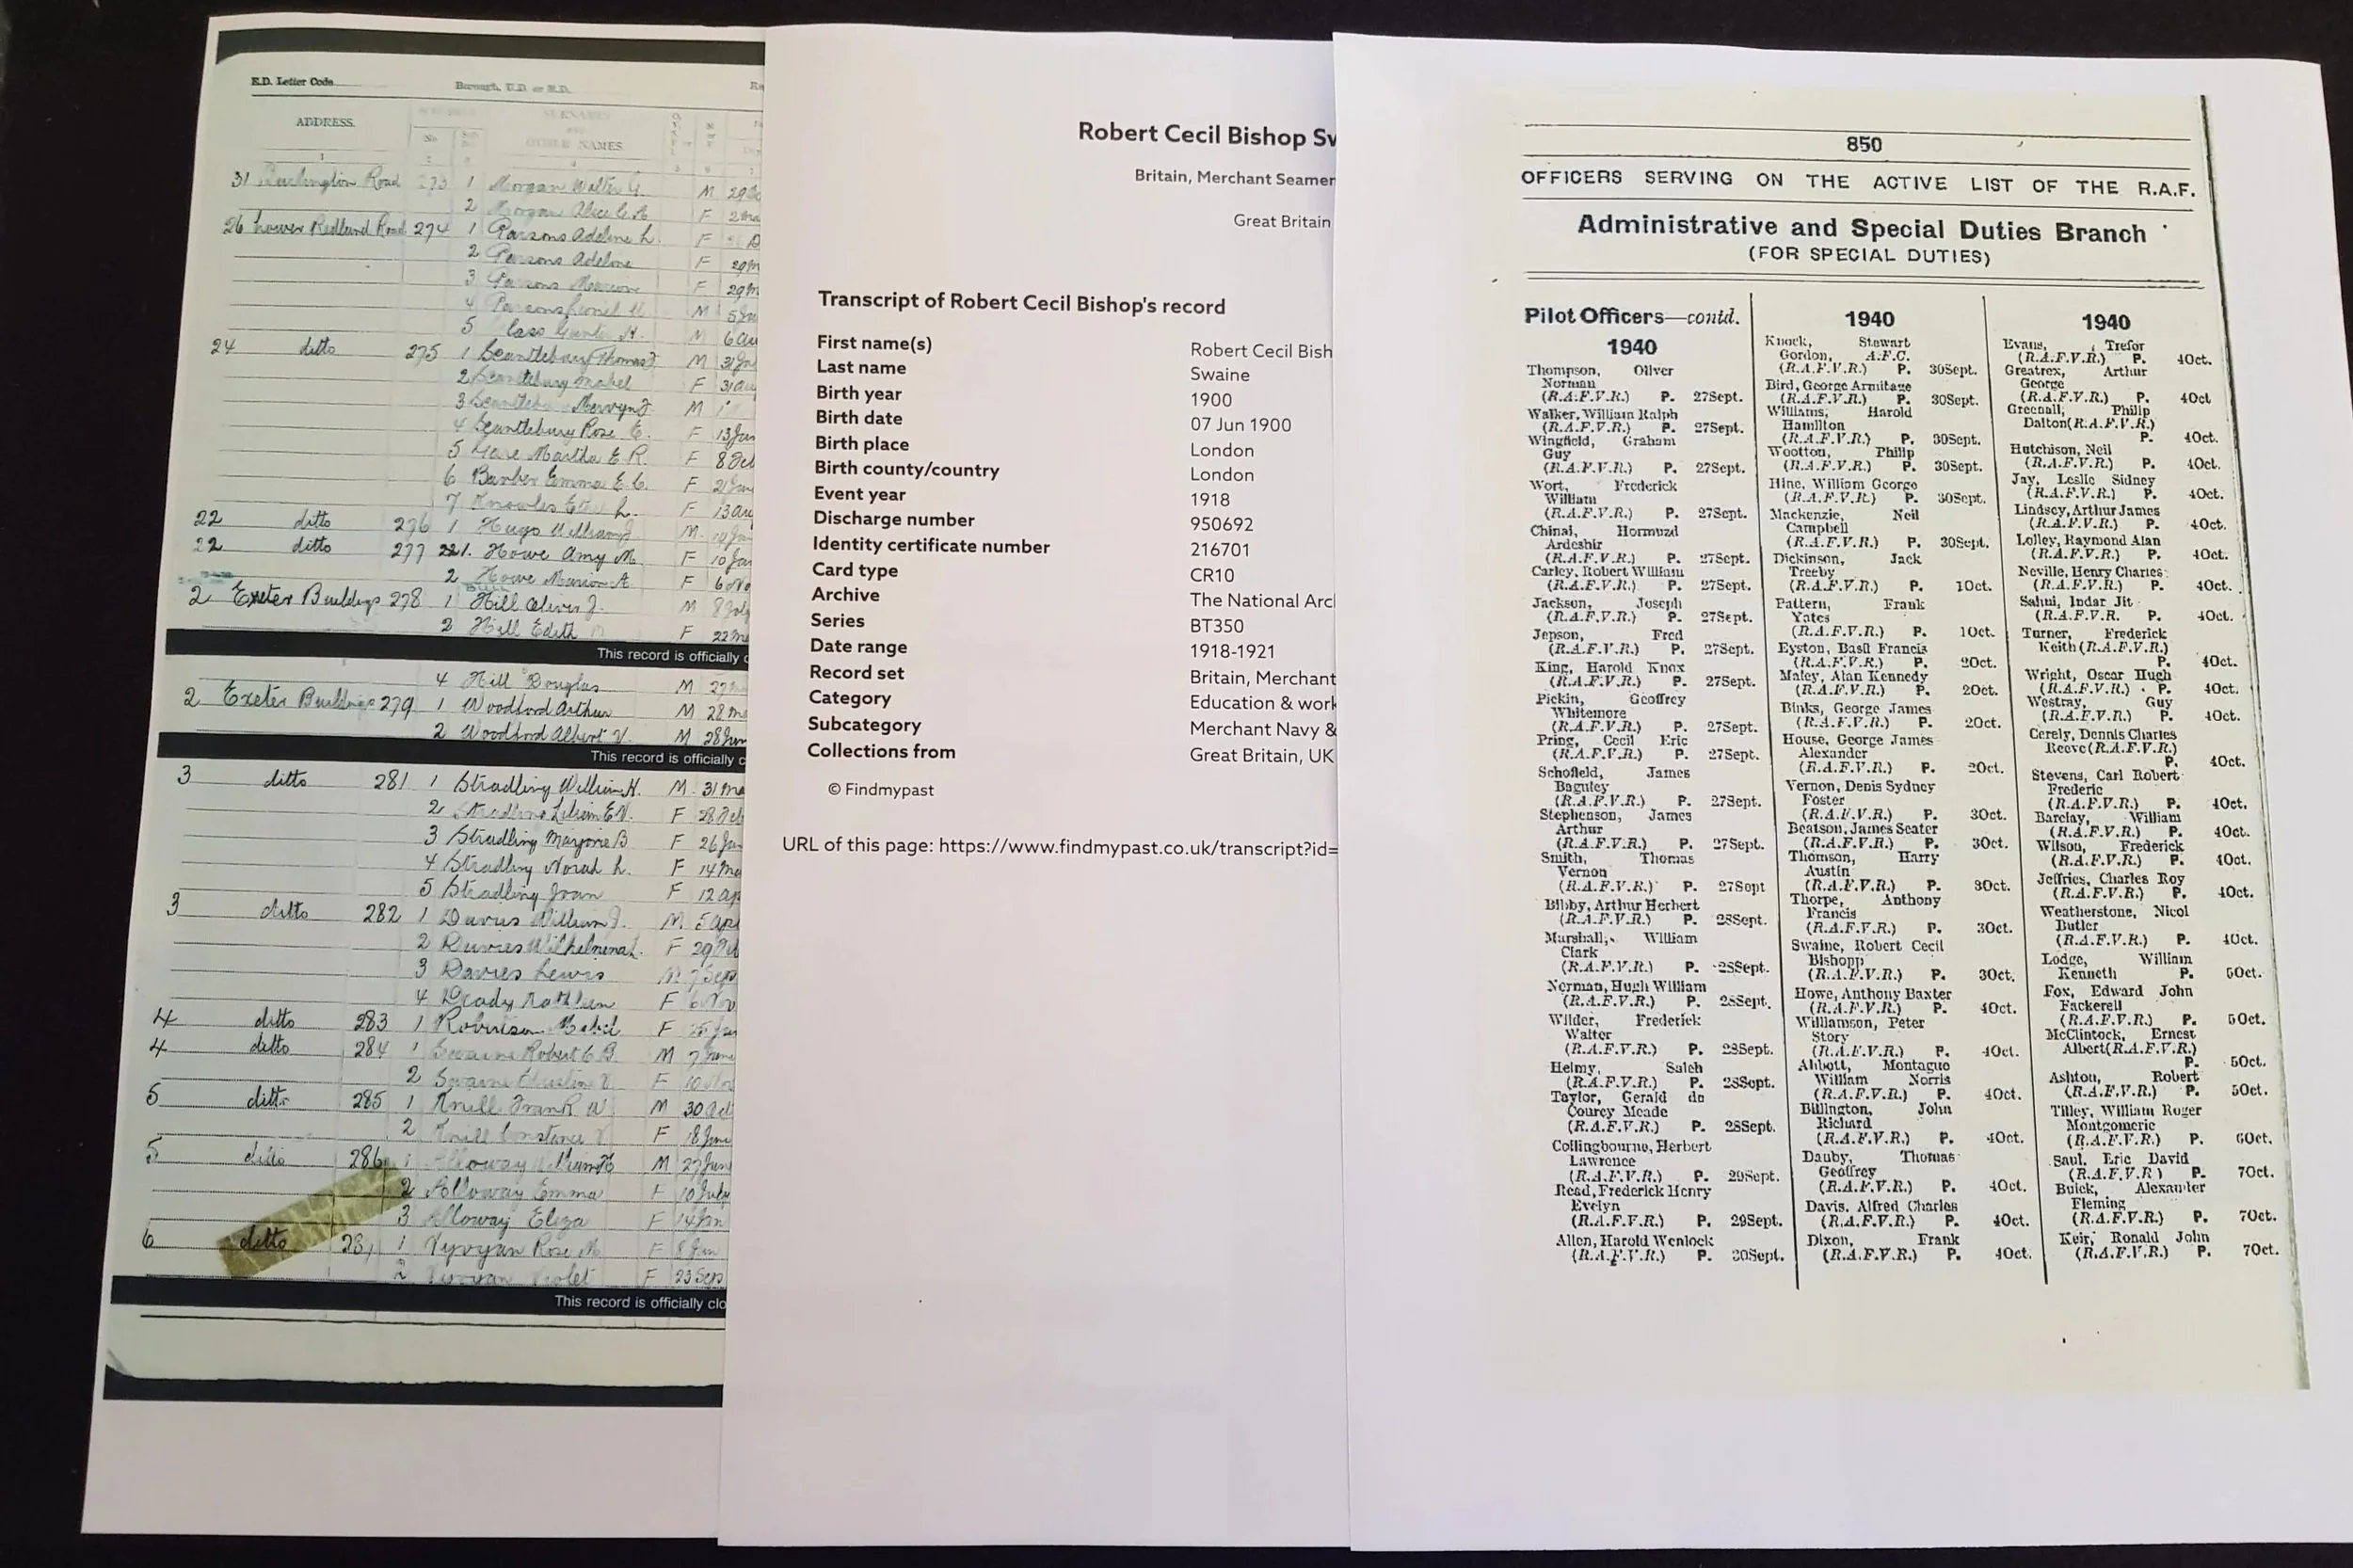 E.D. Letter Code
Borough, U.D. or R.D.
ADDRESS.
SURNAMES
AND
OTHER NAMES.
31 Burlington Road 273 1 Morgan Walter G. M
2 Morgan Alice F
26 Lower Redland Road 274 1 Parsons Adeline L. F
2 Parsons Adeline F
3 Parsons F
4 Parsons Lionel M
5 M
24 ditto 275 1 Scantlebury Thomas J. M
2 Scantlebury Mabel F
3 Mervyn J. M
4 Scantlebury Rose E. F 13 Jan
5 Martha E R. F 8 Oct
6 Barber Emma E. C. F
7 Knowles L. F
22 ditto 276 1 Hugo William J M.
22 ditto 277 1. Howe Amy M. F 10 Jan
2 Howe Marion A. F 6 No
2 Exeter Buildings 278 1 Hill Oliver J. M 8 July
2 Hill Edith F
This record is officially c
4 Hill Douglas M
2 Exeter Buildings 279 1 Woodford Arthur M
2 Woodford Albert V. M 28 Jun
This record is officially c
3 ditto 281 1 Stradling William H. M. 31 Ma
2 Stradling Lilian E V. F
3 Stradling Marjorie B F 26 Ju
4 Stradling Norah L. F 14 Ma
5 Stradling Joan F 12 Ap
3 ditto 282 1 Davies William J. M. 5 Apr
2 Davies Wilhelmena L. F
3 Davies Lewis M. 7 Sep
4 F 6 Nov
4 ditto 283 1 Robinson Mabel F
4 ditto 284 1 Swaine Robert C B. M 7 June
2 Swaine Christine V F 10
5 ditto 285 1 Knill Frank W M 30 Oct
2 Knill Constance V F 18 June
5 ditto 286 1 Alloway William H M 27 June
2 Alloway Emma F 10 July
3 Alloway Eliza F 14 Jan
6 ditto 1 Vyvyan Rose M F 8 Jan
2 Vyvyan Violet F 23 Sep
This record is officially clo
Robert Cecil Bishop Sw
Britain, Merchant Seamen
Great Britain
Transcript of Robert Cecil Bishop's record
First name(s) Robert Cecil Bish
Last name Swaine
Birth year 1900
Birth date 07 Jun 1900
Birth place London
Birth county/country London
Event year 1918
Discharge number 950692
Identity certificate number 216701
Card type CR10
Archive The National Arc
Series BT350
Date range 1918-1921
Record set Britain, Merchant
Category Education & work
Subcategory Merchant Navy &
Collections from Great Britain, UK
© Findmypast
URL of this page: https://www.findmypast.co.uk/transcript?id=
850
OFFICERS SERVING ON THE ACTIVE LIST OF THE R.A.F.
Administrative and Special Duties Branch
(FOR SPECIAL DUTIES)
Pilot Officers—contd.
1940
Thompson, Oliver
Norman
(R.A.F.V.R.) P. 27Sept.
Walker, William Ralph
(R.A.F.V.R.) P. 27Sept.
Wingfield, Graham
Guy
(R.A.F.V.R.) P. 27Sept.
Wort, Frederick
William
(R.A.F.V.R.) P. 27Sept.
Chinai, Hormuzd
Ardeshir
(R.A.F.V.R.) P. 27Sept.
Carley, Robert William
(R.A.F.V.R.) P. 27Sept.
Jackson, Joseph
(R.A.F.V.R.) P. 27Sept.
Jepson, Fred
(R.A.F.V.R.) P. 27Sept.
King, Harold Knox
(R.A.F.V.R.) P. 27Sept.
Pickin, Geoffrey
Whitemore
(R.A.F.V.R.) P. 27Sept.
Pring, Cecil Eric
(R.A.F.V.R.) P. 27Sept.
Schofield, James
Baguley
(R.A.F.V.R.) P. 27Sept.
Stephenson, James
Arthur
(R.A.F.V.R.) P. 27Sept.
Smith, Thomas
Vernon
(R.A.F.V.R.) P. 27Sept
Bibby, Arthur Herbert
(R.A.F.V.R.) P. 28Sept.
Marshall, William
Clark
(R.A.F.V.R.) P. 28Sept.
Norman, Hugh William
(R.A.F.V.R.) P. 28Sept.
Wilder, Frederick
Walter
(R.A.F.V.R.) P. 28Sept.
Helmy, Saleh
(R.A.F.V.R.) P. 28Sept.
Taylor, Gerald de
Courcy Meade
(R.A.F.V.R.) P. 28Sept.
Collingbourne, Herbert
Lawrence
(R.A.F.V.R.) P. 29Sept.
Read, Frederick Henry
Evelyn
(R.A.F.V.R.) P. 29Sept.
Allen, Harold Wenlock
(R.A.F.V.R.) P. 30Sept.
1940
Knock, Stewart
Gordon, A.F.C.
(R.A.F.V.R.) P. 30Sept.
Bird, George Armitage
(R.A.F.V.R.) P. 30Sept.
Williams, Harold
Hamilton
(R.A.F.V.R.) P. 30Sept.
Wootton, Philip
(R.A.F.V.R.) P. 30Sept.
Hine, William George
(R.A.F.V.R.) P. 30Sept.
Mackenzie, Neil
Campbell
(R.A.F.V.R.) P. 30Sept.
Dickinson, Jack
Treeby
(R.A.F.V.R.) P. 1Oct.
Pattern, Frank
Yates
(R.A.F.V.R.) P. 1Oct.
Eyston, Basil Francis
(R.A.F.V.R.) P. 2Oct.
Maley, Alan Kennedy
(R.A.F.V.R.) P. 2Oct.
Binks, George James
(R.A.F.V.R.) P. 2Oct.
House, George James
Alexander
(R.A.F.V.R.) P. 2Oct.
Vernon, Denis Sydney
Foster
(R.A.F.V.R.) P. 3Oct.
Beatson, James Seater
(R.A.F.V.R.) P. 3Oct.
Thomson, Harry
Austin
(R.A.F.V.R.) P. 3Oct.
Thorpe, Anthony
Francis
(R.A.F.V.R.) P. 3Oct.
Swaine, Robert Cecil
Bishopp
(R.A.F.V.R.) P. 3Oct.
Howe, Anthony Baxter
(R.A.F.V.R.) P. 4Oct.
Williamson, Peter
Story
(R.A.F.V.R.) P. 4Oct.
Abbott, Montague
William Norris
(R.A.F.V.R.) P. 4Oct.
Billington, John
Richard
(R.A.F.V.R.) P. 4Oct.
Dauby, Thomas
Geoffrey
(R.A.F.V.R.) P. 4Oct.
Davis, Alfred Charles
(R.A.F.V.R.) P. 4Oct.
Dixon, Frank
(R.A.F.V.R.) P. 4Oct.
1940
Evans, Trefor
(R.A.F.V.R.) P. 4Oct.
Greatrex, Arthur
George
(R.A.F.V.R.) P. 4Oct
Greenall, Philip
Dalton(R.A.F.V.R.)
P. 4Oct.
Hutchison, Neil
(R.A.F.V.R.) P. 4Oct.
Jay, Leslie Sidney
(R.A.F.V.R.) P. 4Oct.
Lindsey, Arthur James
(R.A.F.V.R.) P. 4Oct.
Lolley, Raymond Alan
(R.A.F.V.R.) P. 4Oct.
Neville, Henry Charles
(R.A.F.V.R.) P. 4Oct.
Sahni, Indar Jit
(R.A.F.V.R. P. 4Oct.
Turner, Frederick
Keith(R.A.F.V.R.)
P. 4Oct.
Wright, Oscar Hugh
(R.A.F.V.R.) P. 4Oct.
Westray, Guy
(R.A.F.V.R.) P. 4Oct.
Cerely, Dennis Charles
Reeve(R.A.F.V.R.)
P. 4Oct.
Stevens, Carl Robert
Frederic
(R.A.F.V.R.) P. 4Oct.
Barclay, William
(R.A.F.V.R.) P. 4Oct.
Wilson, Frederick
(R.A.F.V.R.) P. 4Oct.
Jeffries, Charles Roy
(R.A.F.V.R.) P. 4Oct.
Weatherstone, Nicol
Butler
(R.A.F.V.R.) P. 4Oct.
Lodge, William
Kenneth P. 5Oct.
Fox, Edward John
Fackerell
(R.A.F.V.R.) P. 5Oct.
McClintock, Ernest
Albert(R.A.F.V.R.)
P. 5Oct.
Ashton, Robert
(R.A.F.V.R.) P. 5Oct.
Tilley, William Roger
Montgomerie
(R.A.F.V.R.) P. 6Oct.
Saul, Eric David
(R.A.F.V.R ) P. 7Oct.
Buick, Alexander
Fleming
(R.A.F.V.R.) P. 7Oct.
Keir, Ronald John
(R.A.F.V.R.) P. 7Oct.